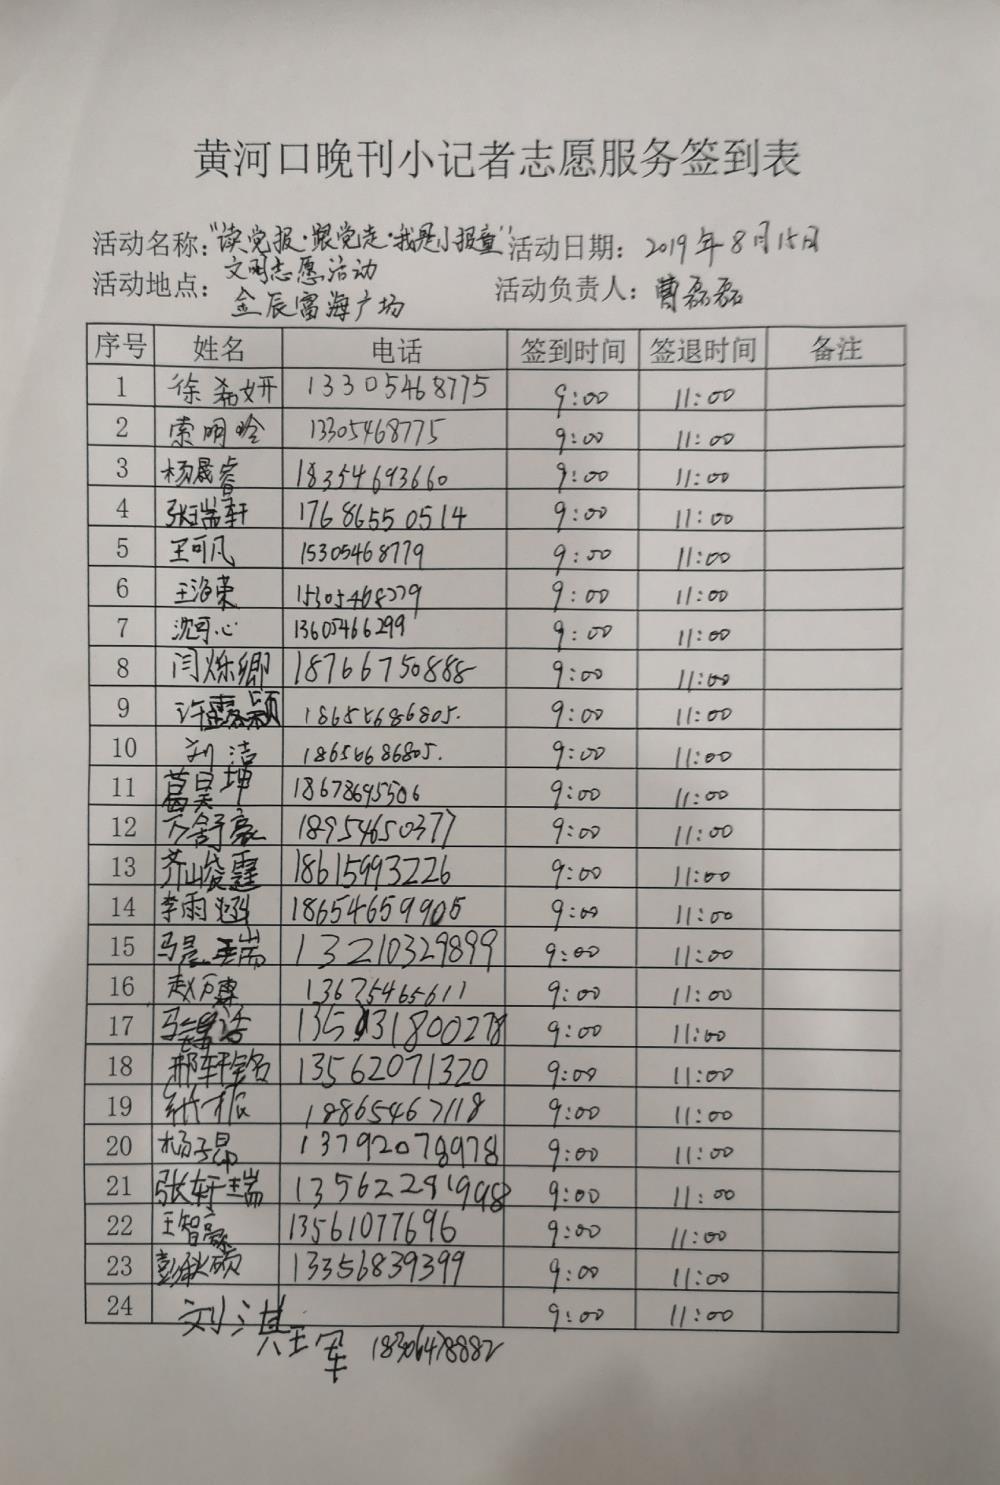 黄河口晚刊小记者志愿服务签到表
活动名称："读党报·跟党走·我是小报童" 活动日期：2019年8月15日
文明志愿活动
活动地点：金辰富海广场 活动负责人：曹磊磊
序号 姓名 电话 签到时间 签退时间 备注
1 徐希妍 13305468775 9:00 11:00
2 索明晗 13305468775 9:00 11:00
3 杨晟睿 18354693660 9:00 11:00
4 张瑞轩 17686550514 9:00 11:00
5 王可凡 15305468779 9:00 11:00
6 王洺荣 15305468779 9:00 11:00
7 沈可心 13605466299 9:00 11:00
8 闫烁卿 18766750888 9:00 11:00
9 许露颖 18656686805. 9:00 11:00
10 刘洁 18656686805. 9:00 11:00
11 葛昊坤 18678695506 9:00 11:00
12 舒豪 18954650377 9:00 11:00
13 18615993226 9:00 11:00
14 李雨涵 18654659905 9:00 11:00
15 马晨瑞 13210329899 9:00 11:00
16 赵万 13675465611 9:00 11:00
17 马 9:00 11:00
18 郝轩铭 13562071320 9:00 11:00
19 18865467118 9:00 11:00
20 杨子昂 13792078978 9:00 11:00
21 张轩瑞 13562281998 9:00 11:00
22 王智 13561077696 9:00 11:00
23 彭秋硕 13356839399 9:00 11:00
24 刘淇 9:00 11:00
王军 18306478882